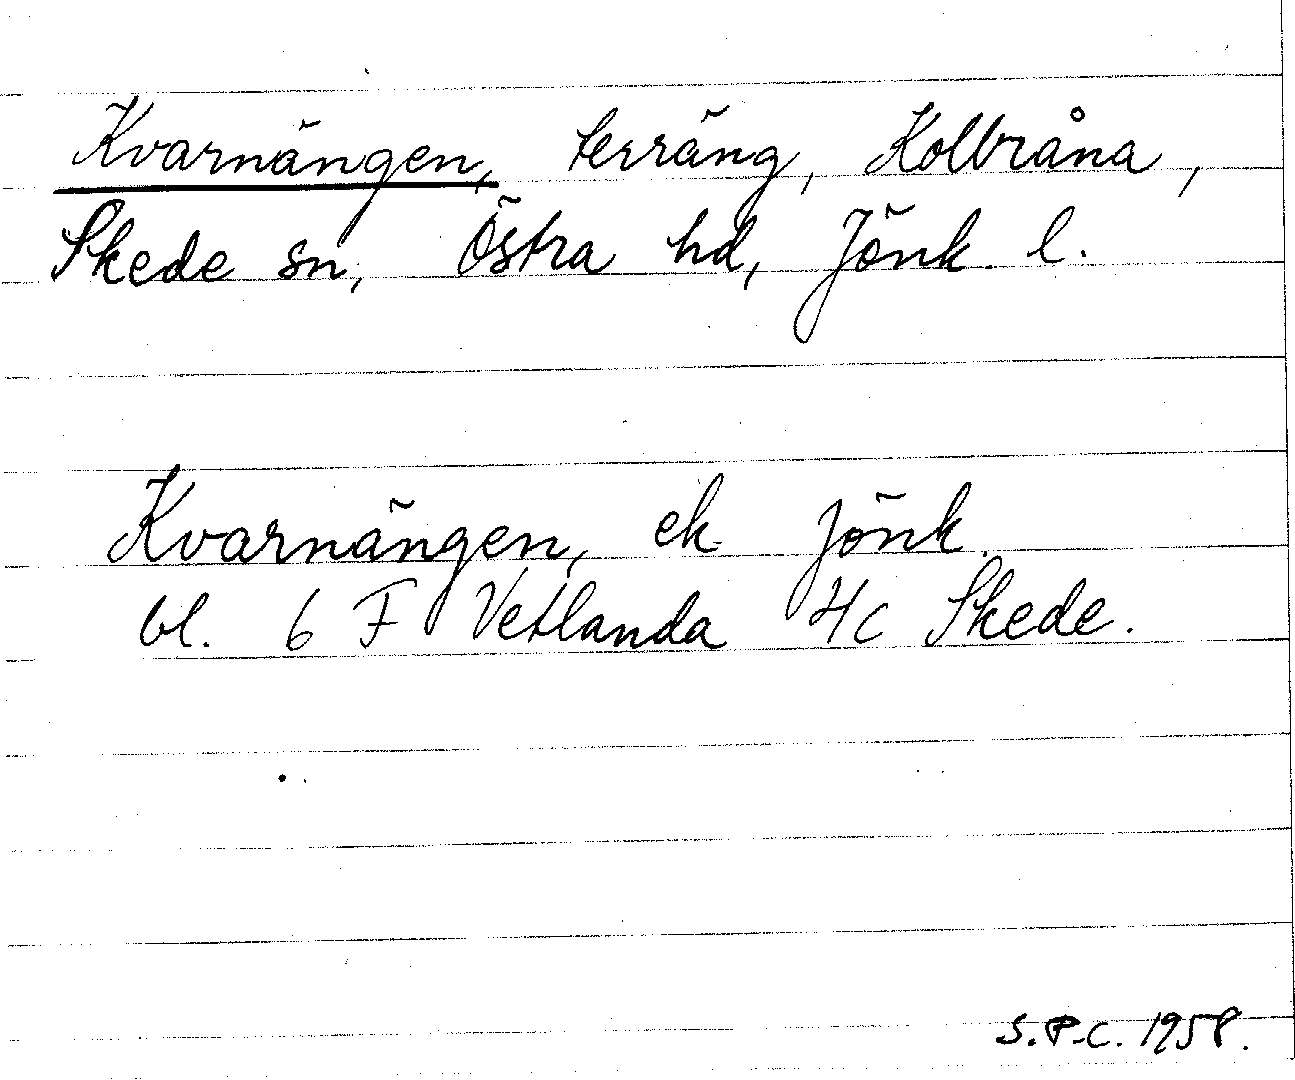 Kvarnängen, terräng, Kolbråna,
Skede sn, Östra hd, Jönk. l.
Kvarnängen, ek Jönk.
bl. 6 F Vetlanda 4c Skede.
S.P-C. 1958.